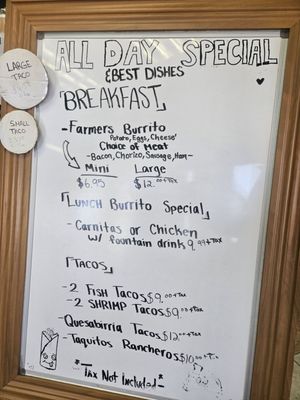 ALL DAY SPECIAL
& BEST DISHES
LARGE
TACO
SMALL
TACO
BREAKFAST
- Farmers Burrito
Potato, Eggs, Cheese
Choice of Meat
- Bacon, Chorizo, Sausage, Ham -
Mini Large
$6.95 $12.00 + Tax
LUNCH Burrito Special
- Carnitas or Chicken
w/ fountain drink 9.99 + Tax
TACOS
- 2 FISH Tacos $9.00 + Tax
- 2 SHRIMP Tacos $9.00 + Tax
- Quesabirria Tacos $12.00 + Tax
- Taquitos Rancheros $10.00 + Tx
* Tax Not Included - *